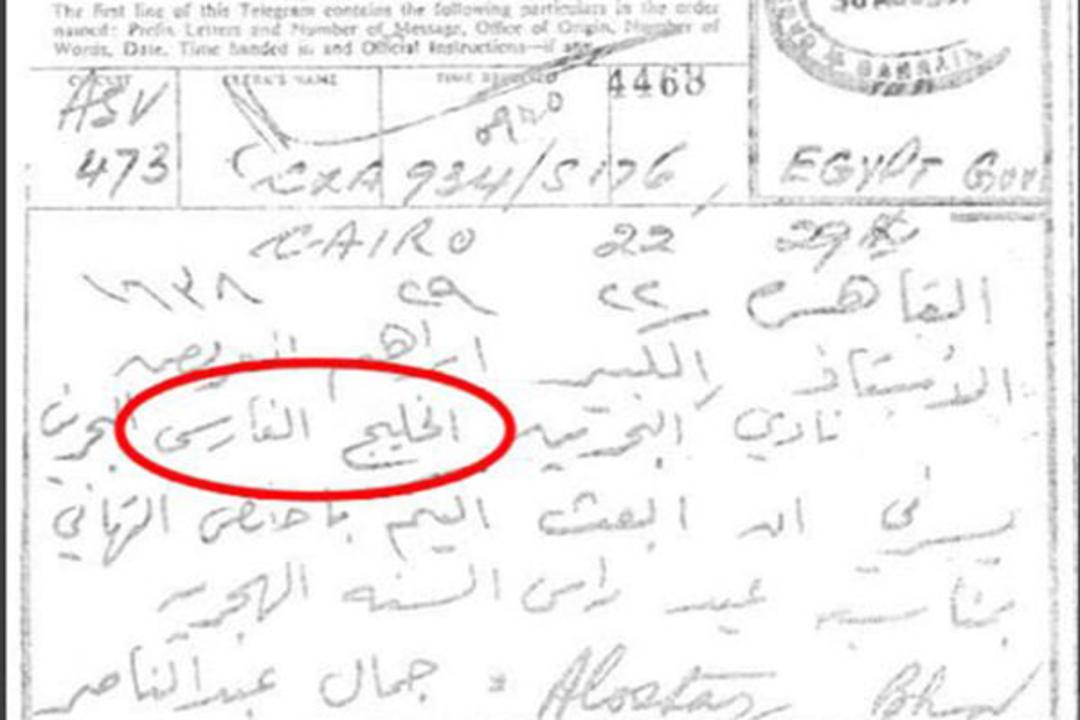 The first line of this Telegram contains the following particulars in the order
named: Prefix Letters and Number of Message, Office of Origin, Number of
Words, Date, Time handed in and Official Instructions—if any.
CLERK'S NAME TIME RECEIVED 4468
BAHRAIN
473 CXA 934/S176 EGYPT Gov
CAIRO 22 29
القاهرة ٢٢ ٢٩ ١٦٣٨
الاستاذ الكبير ابراهيم
نادي البحرين الخليج الفارسى البحرين
يسرني ان ابعث اليكم باخلص التهاني
بمناسبة عيد راس السنه الهجرية
جمال عبدالناصر